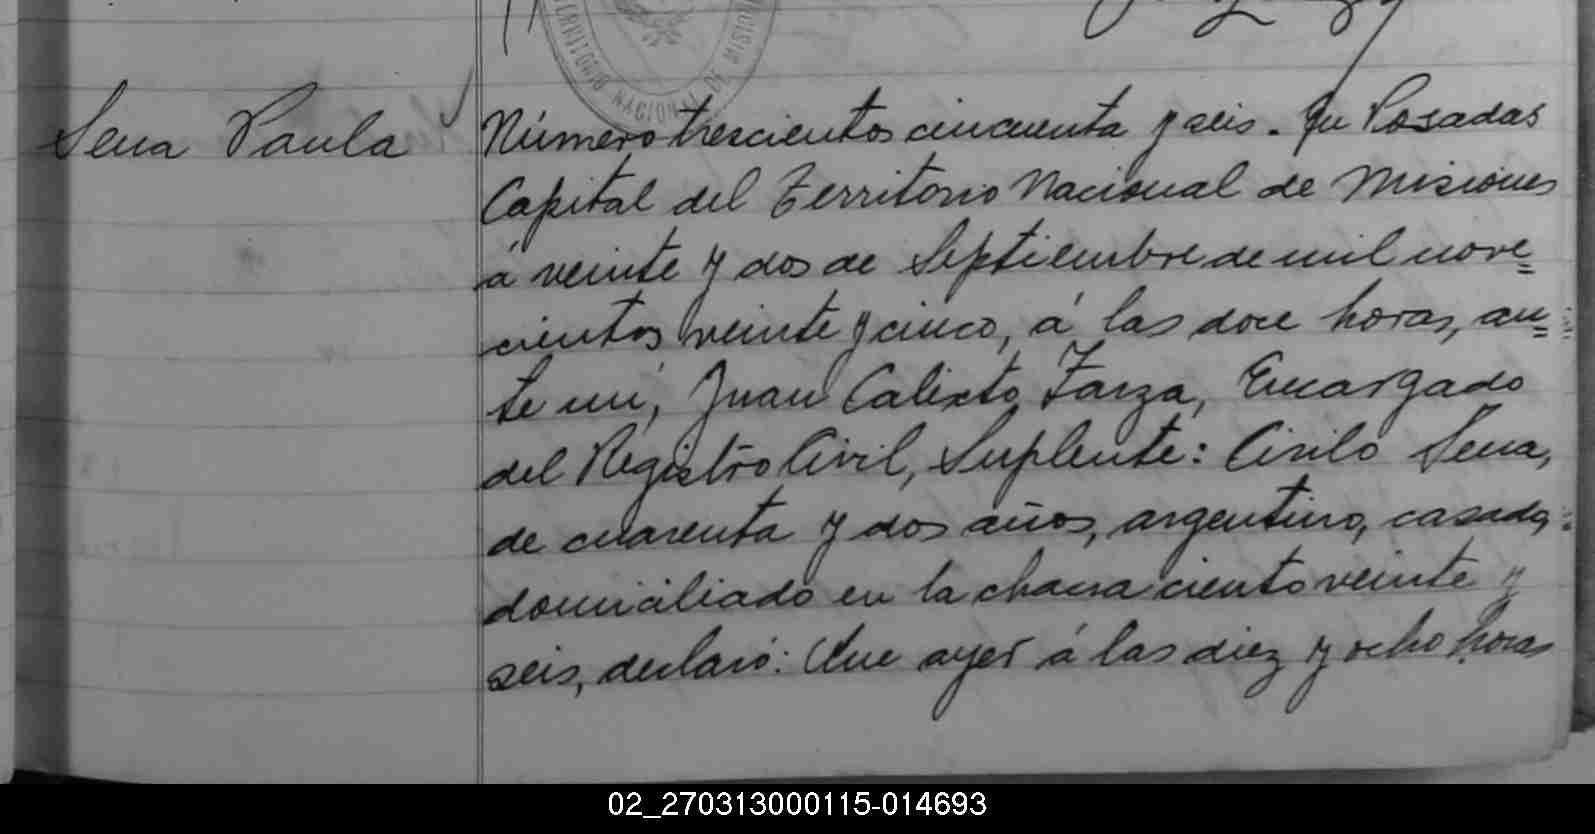 TERRITORIO NACIONAL DE MISIONES
Sena Paula
Número trescientos cincuenta y seis. En Posadas
Capital del Territorio Nacional de Misiones
á veinte y dos de Septiembre de mil nove=
cientos veinte y cinco, á las doce horas, an=
te mí, Juan Calixto Zarza, Encargado
del Registro Civil, Suplente: Cirilo Sena,
de cuarenta y dos años, argentino, casado,
domiciliado en la chacra ciento veinte y
seis, declaró: Que ayer á las diez y ocho horas
02_270313000115-014693